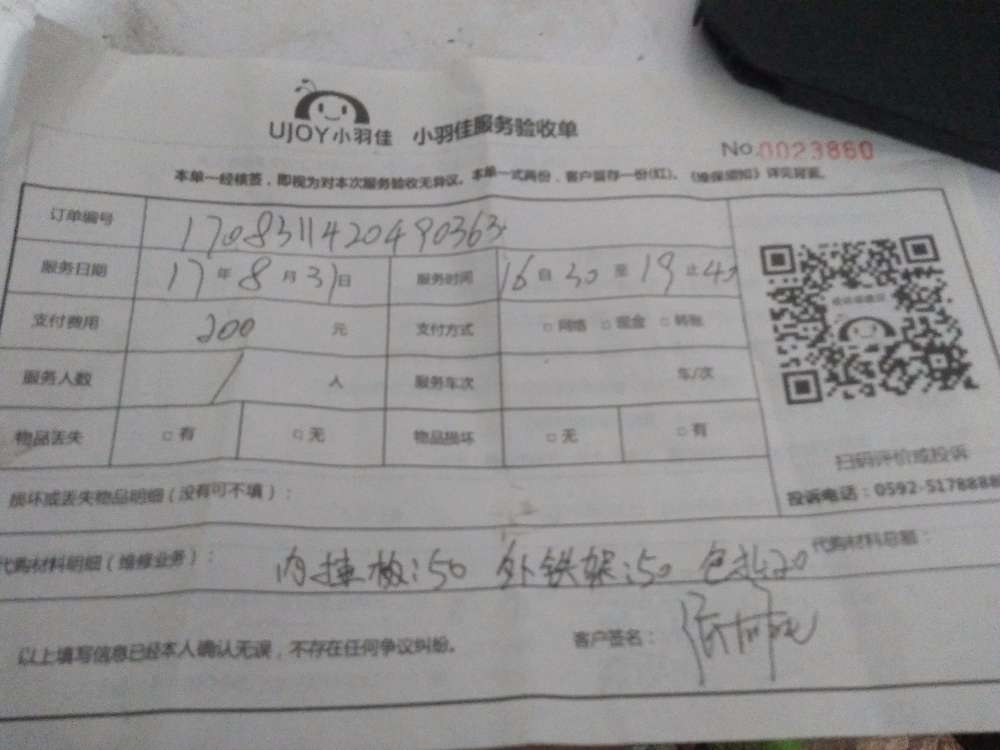 UJOY小羽佳 小羽佳服务验收单
No.0023860
本单一经核签，即视为对本次服务验收无异议。本单一式两份，客户留存一份(红)。《维保须知》详见背面。
订单编号 170831142049036​3
服务日期 17年8月31日 服务时间 16自30至19止40
支付费用 200元 支付方式 □网络 □现金 □转账
服务人数 1人 服务车次 车/次
物品丢失 □有 □无 物品损坏 □无 □有
扫码评价或投诉
损坏或丢失物品明细（没有可不填）：
投诉电话：0592-5178888
代购材料明细（维修业务）： 内挂板:50 外铁架:50 包扎20 代购材料总额：
以上填写信息已经本人确认无误，不存在任何争议纠纷。 客户签名：